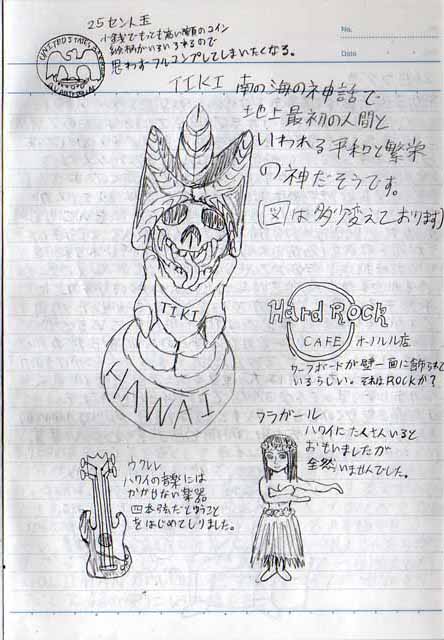 25セント玉
小銭でもっても高い額のコイン
絵柄がいろいろあるので
思わずフルコンプしてしまいたくなる。
UNITED STATES
No.
Date
TIKI 南の海の神話で
地上最初の人間と
いわれる平和と繁栄
の神だそうです。
(図は多少変えております)
TIKI
HAWAI
Hard Rock
CAFE ホノルル店
サーフボードが壁一面に飾られて
いるらしい。それはROCKか?
フラガール
ハワイにたくさんいると
おもいましたが
全然いませんでした。
ウクレレ
ハワイの音楽には
かかせない楽器
四本弦だとゆうこと
をはじめてしりました。